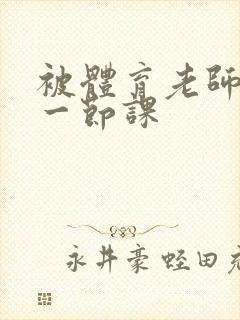 被體育老師
一節課
永井豪 蛭田充